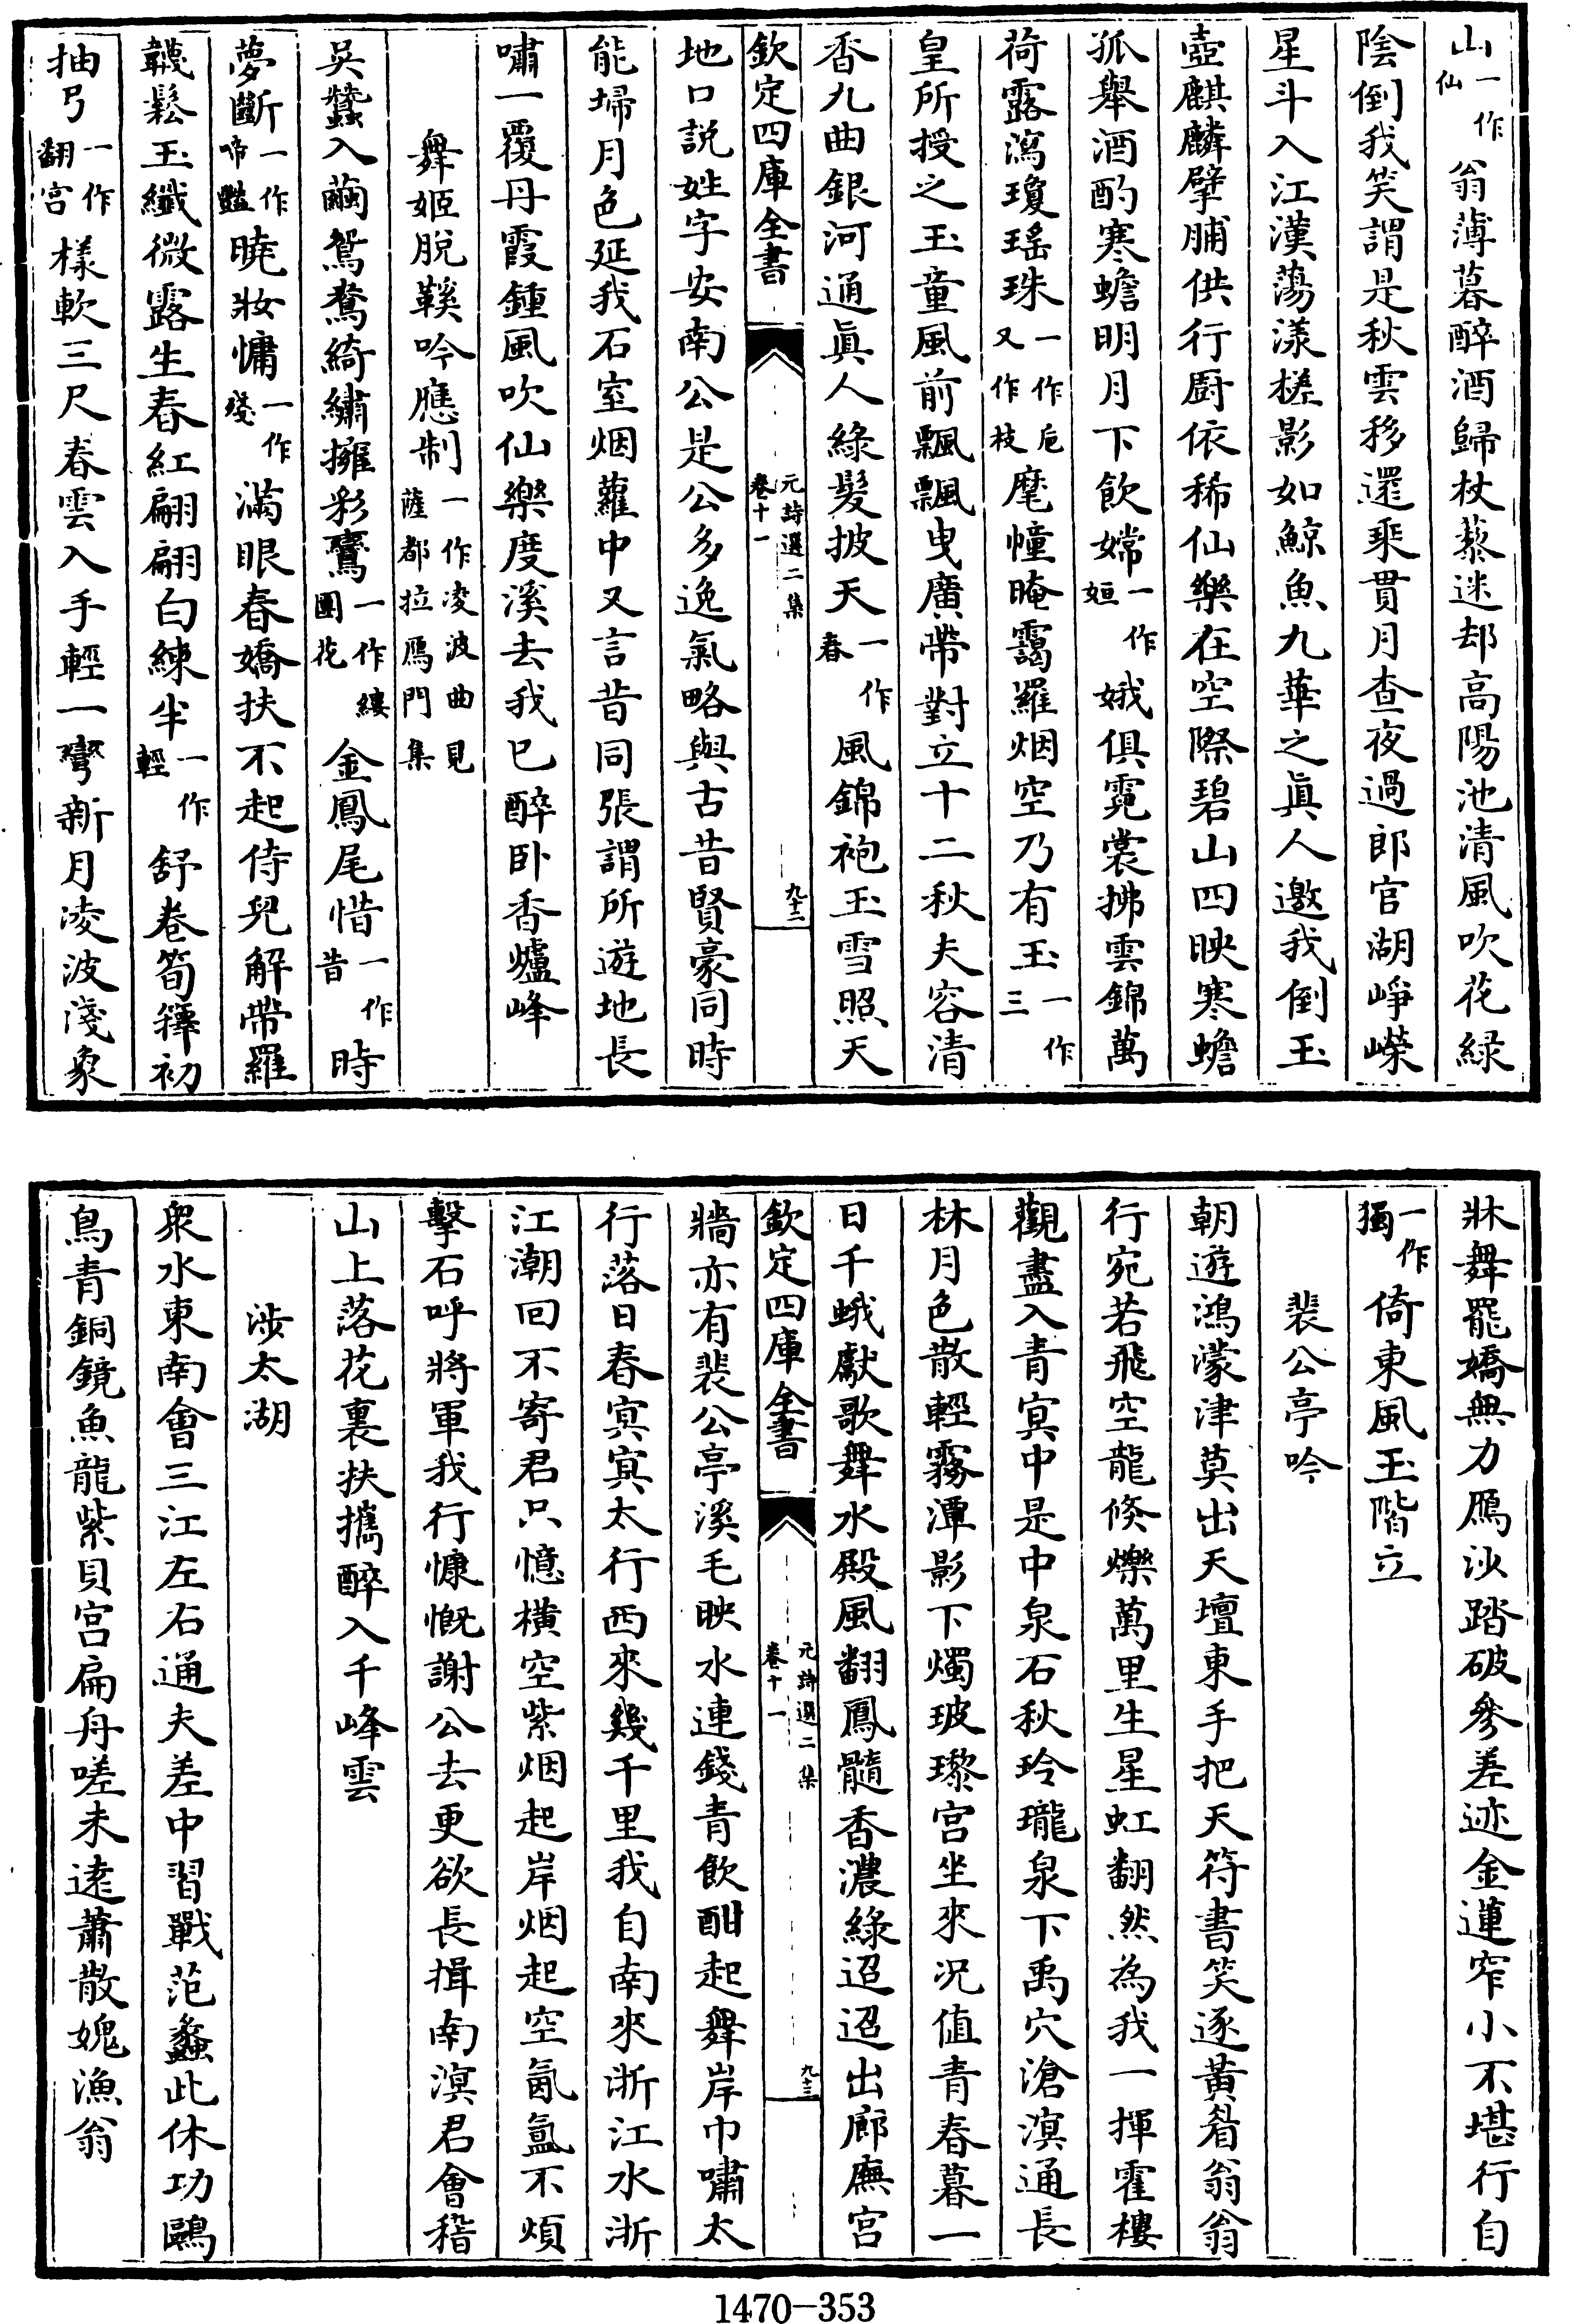 山一作仙翁薄暮醉酒歸杖藜迷却高陽池清風吹花緑
陰倒我笑謂是秋雲移還乘貫月查夜過郎官湖崢嶸
星斗入江漢蕩漾槎影如鯨魚九華之眞人邀我倒玉
壺麒麟擘脯供行厨依稀仙樂在空際碧山四映寒蟾
孤舉酒酌寒蟾明月下飲嫦一作姮娥俱霓裳拂雲錦萬
荷露瀉瓊瑤珠一作卮又作枝麾幢晻靄羅烟空乃有玉一作三
皇所授之玉童風前飄飄曳廣帶對立十二秋夫容清
香九曲銀河通眞人綠髮披天一作春風錦袍玉雪照天
欽定四庫全書 元詩選二集 卷十一 九十二
地口説姓字安南公是公多逸氣略與古昔賢豪同時
能埽月色延我石室烟蘿中又言昔同張謂所遊地長
嘯一覆丹霞鍾風吹仙樂度溪去我已醉卧香爐峰
舞姬脱鞵吟應制一作凌波曲見薩都拉鴈門集
吳蠶入繭鴛鴦綺繡擁彩鸞一作縷團花金鳳尾惜一作昔時
夢斷一作啼豔曉妝慵一作殘滿眼春嬌扶不起侍兒解帶羅
韈鬆玉纖微露生春紅翩翩白練半一作輕舒卷筍籜初
抽弓一作翻宫樣軟三尺春雲入手輕一彎新月凌波淺象
牀舞罷嬌無力鴈沙踏破參差迹金蓮窄小不堪行自
一作獨倚東風玉階立
裴公亭吟
朝遊鴻濛津莫出天壇東手把天符書笑逐黃眉翁翁
行宛若飛空龍倏爍萬里生星虹翻然為我一揮霍樓
觀盡入青冥中是中泉石秋玲瓏泉下禹穴滄溟通長
林月色散輕霧潭影下燭玻瓈宫坐來况值青春暮一
日千蛾獻歌舞水殿風翻鳳髓香濃綠迢迢出廊廡宫
欽定四庫全書 元詩選二集 卷十一 九十三
牆亦有裴公亭溪毛映水連錢青飲酣起舞岸巾嘯太
行落日春冥冥太行西來幾千里我自南來浙江水浙
江潮回不寄君只憶橫空紫烟起岸烟起空氤氲不煩
擊石呼將軍我行慷慨謝公去更欲長揖南溟君會稽
山上落花裏扶攜醉入千峰雲
涉太湖
衆水東南會三江左右通夫差中習戰范蠡此休功鷗
鳥青銅鏡魚龍紫貝宫扁舟嗟未遠蕭散媿漁翁
1470—353